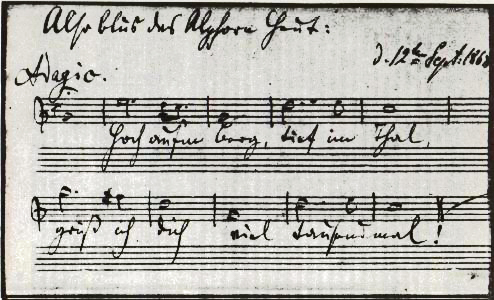 Also blus das Alphorn heut:
d. 12te Sept: 1868
Adagio.
Hoch aufm Berg, tief im Thal,
grüß ich dich viel tausendmal!